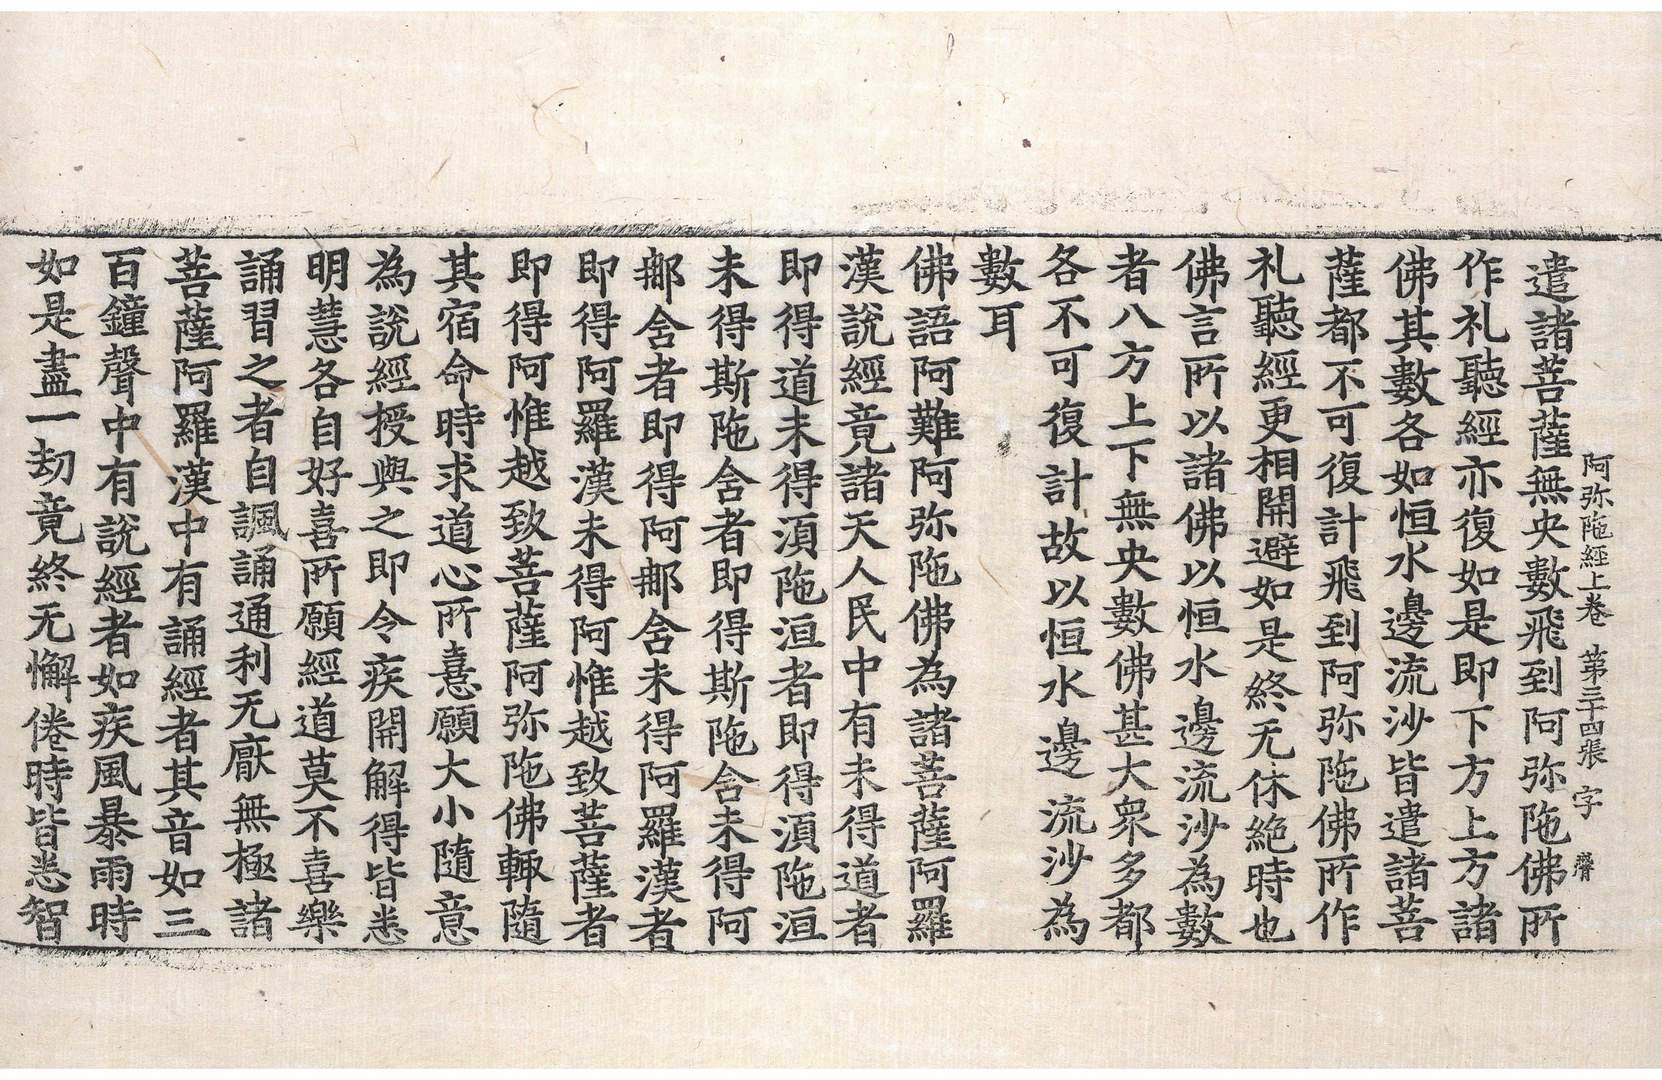 阿弥陁經上卷　第三十四張　字
遣諸菩薩無央數飛到阿弥陁佛所
作礼聽經亦復如是即下方上方諸
佛其數各如恒水邊流沙皆遣諸菩
薩都不可復計飛到阿弥陁佛所作
礼聽經更相開避如是終无休絶時也
佛言所以諸佛以恒水邊流沙為數
者八方上下無央數佛甚大衆多都
各不可復計故以恒水邊流沙為
數耳
佛語阿難阿弥陁佛為諸菩薩阿羅
漢說經竟諸天人民中有未得道者
即得道未得湏陁洹者即得湏陁洹
未得斯陁含者即得斯陁含未得阿
那含者即得阿那含未得阿羅漢者
即得阿羅漢未得阿惟越致菩薩者
即得阿惟越致菩薩阿弥陁佛輙隨
其宿命時求道心所憙願大小隨意
為說經授與之即令疾開解得皆悉
明慧各自好喜所願經道莫不喜樂
誦習之者自諷誦通利无厭無極諸
菩薩阿羅漢中有誦經者其音如三
百鐘聲中有說經者如疾風暴雨時
如是盡一劫竟終无懈倦時皆悉智